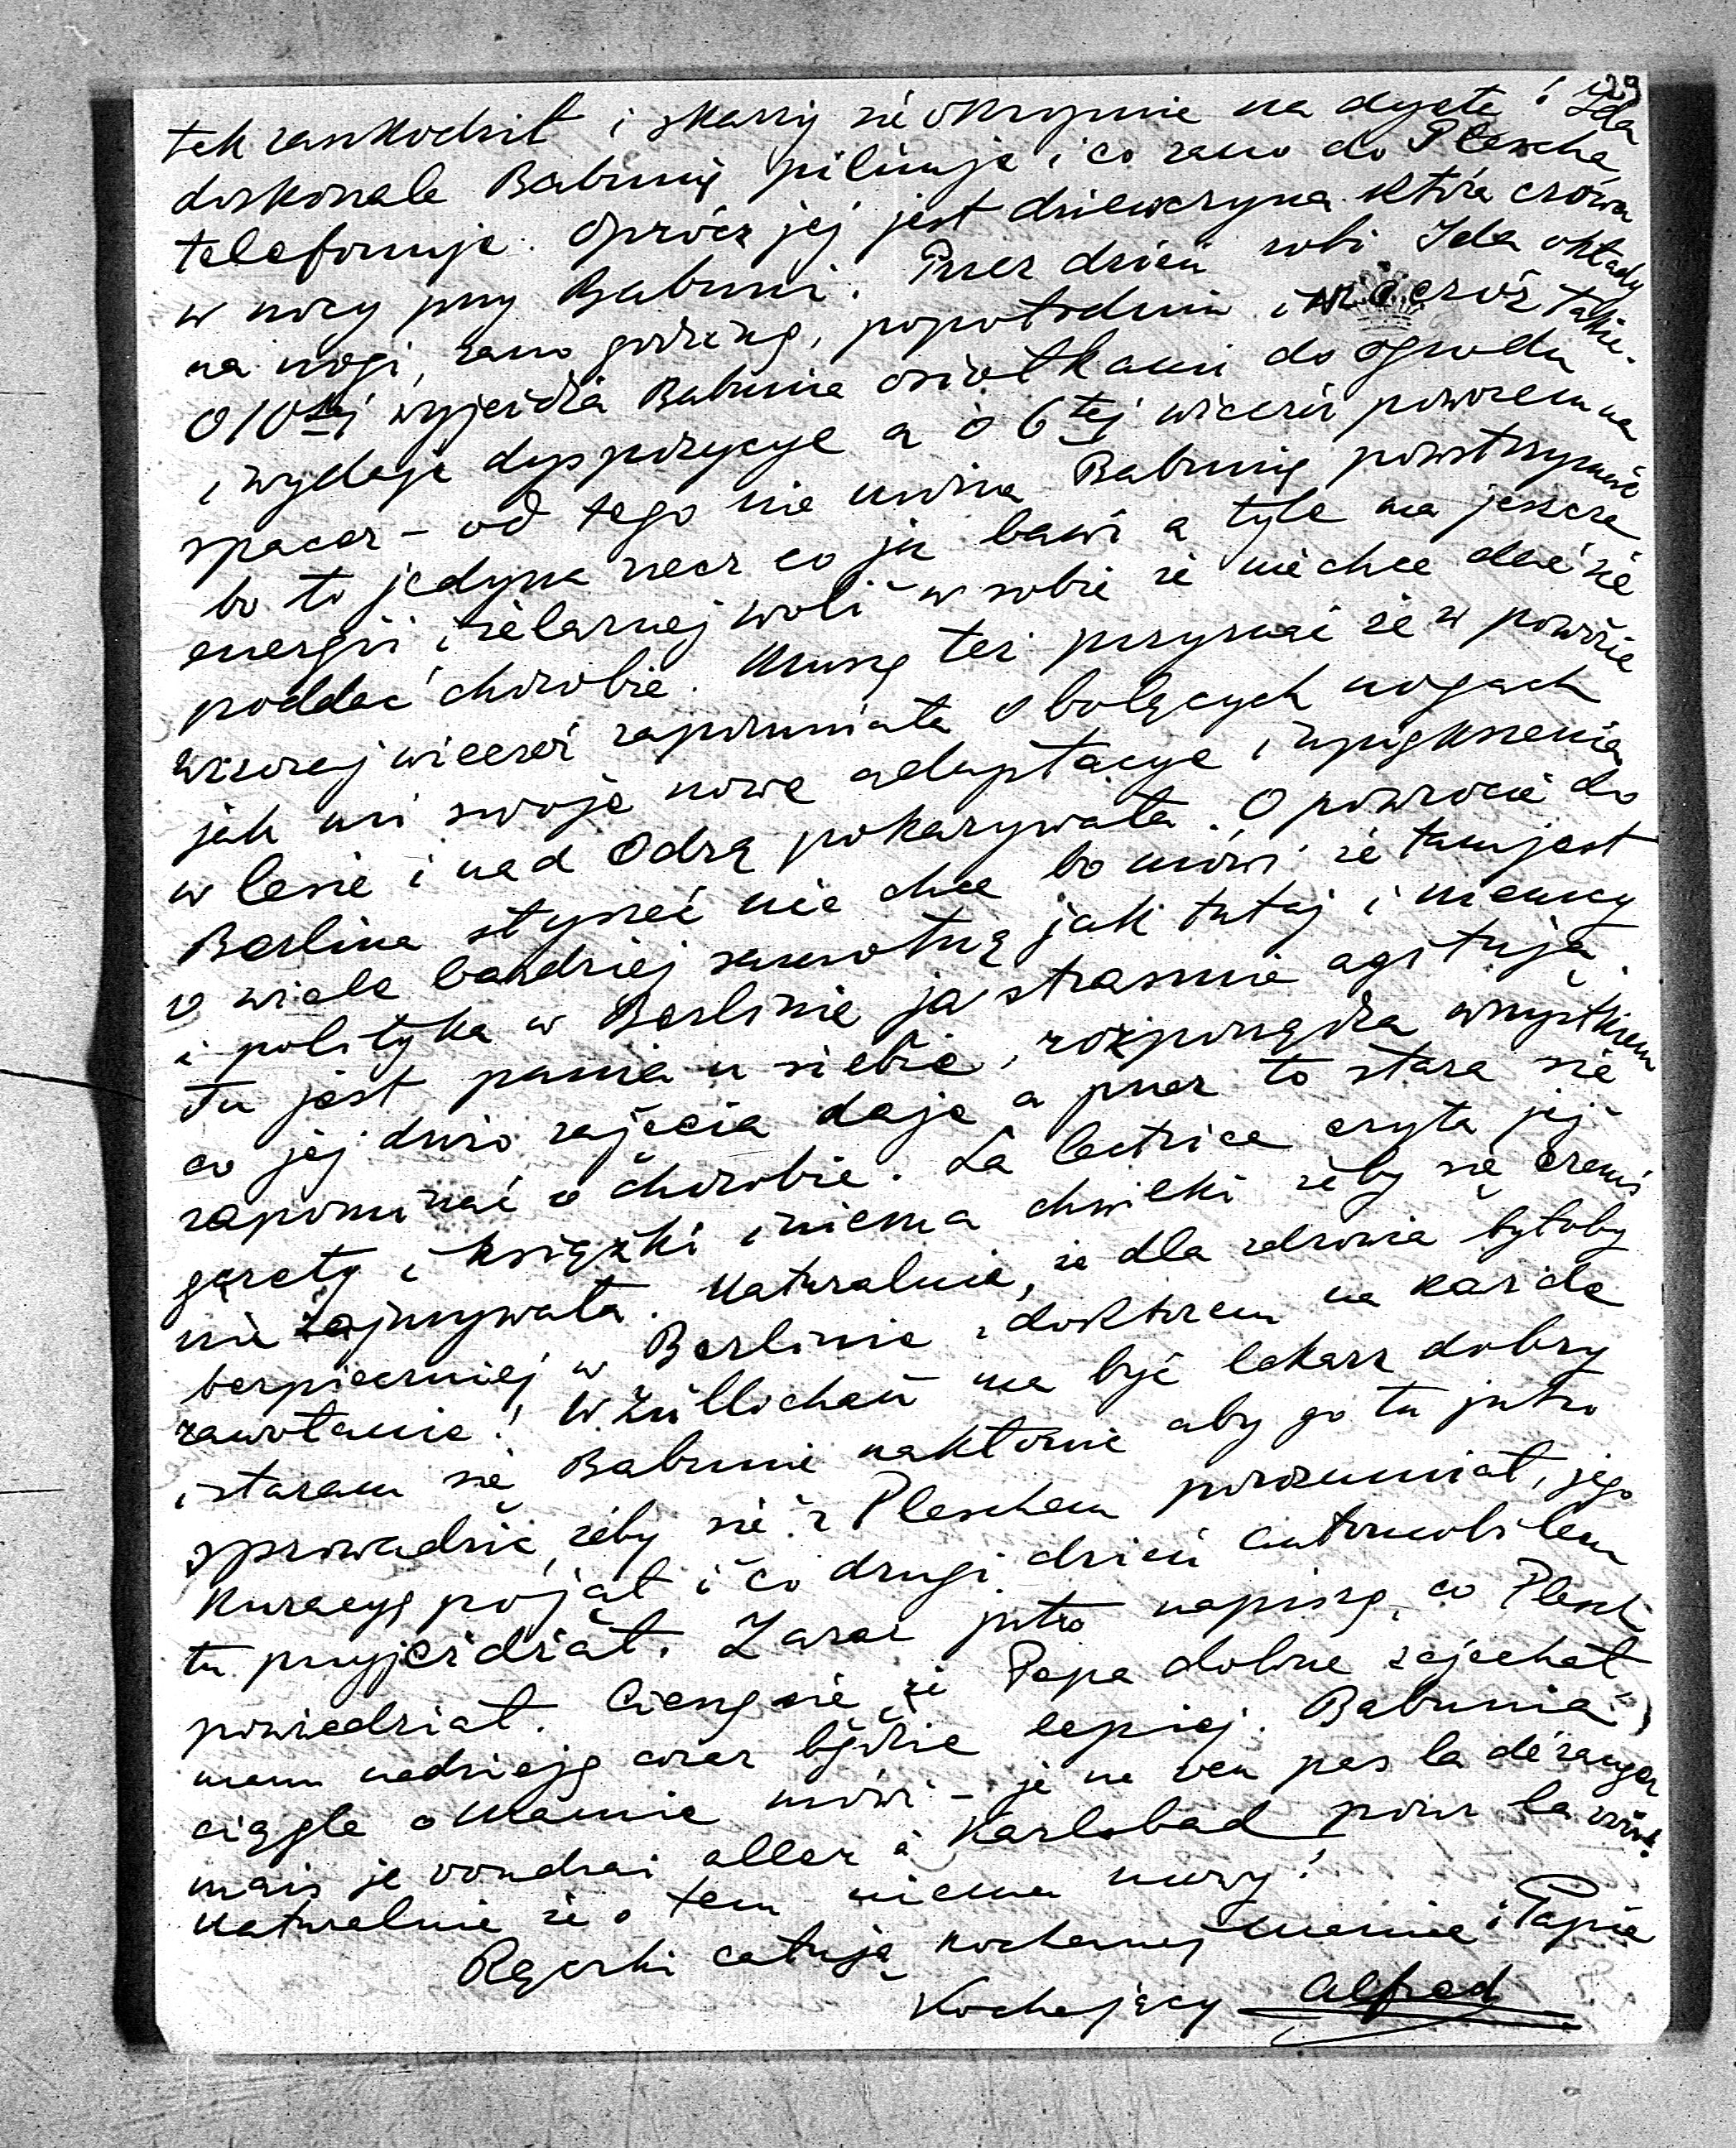 29
tak zaszkodził i skarży się okropnie na dyetę! Ida
doskonale Babunię pilnuje i co rano do Plescha
telefonuje. Oprócz jej jest dziewczyna która czówa
w nocy przy Babuni. Przez dzień robi Ida okłady
na nogi, rano godzinę, popołudniu i wieczór także.
O 10tej wyjeżdża Babunia osiołkami do ogrodu
i wydaje dyspozycye a o 6tej wieczór powozem na
spacer – od tego nie można Babunię powstrzymać
bo to jedyna rzecz co ją bawi a tyle ma jeszcze
energii i żelaznej woli w sobie że nie chce dać się
poddać chorobie. Muszę też przyznać że w powozie
wczoraj wieczór zapomniała o bolących nogach
jak mi swoje nowe adaptacye i upiększenia
w lesie i nad Odrą pokazywała. O powrocie do
Berlina słyszeć nie chce bo mówi że tam jest
o wiele bardziej samotną jak tutaj i niemcy
i polityka w Berlinie ją strasznie agitują.
Tu jest pania u siebie, rozporządza wszystkiem
co jej dużo zajęcia daje a przez to stara się
zapominać o chorobie. La lectrice czyta jej
gazety i książki i niema chwilki żeby się czemś
nie zajmywała. Naturalnie, że dla zdrowia byłoby
bezpieczniej w Berlinie z doktorem na każde
zawołanie! W Züllichau ma być lekarz dobry
i staram się Babunię nakłonić aby go tu jutro
sprowadzić, żeby się z Pleschem porozumiał, jego
kuracyę pojął i co drugi dzień automobilem
tu przyjeżdżał. Zaraz jutro napiszę, co Plesch
powiedział. Cieszę się że Papa dobrze zajechał
mam nadzieję coraz będzie lepiej. Babunia
ciągle o Mamie mówi – je ne veu pas la déranger
mais je voudrai aller à Karlsbad pour la voir!
Naturalnie że o tem niema mowy!
Rączki całuję kochanej Mamie i Papie
Kochający Alfred